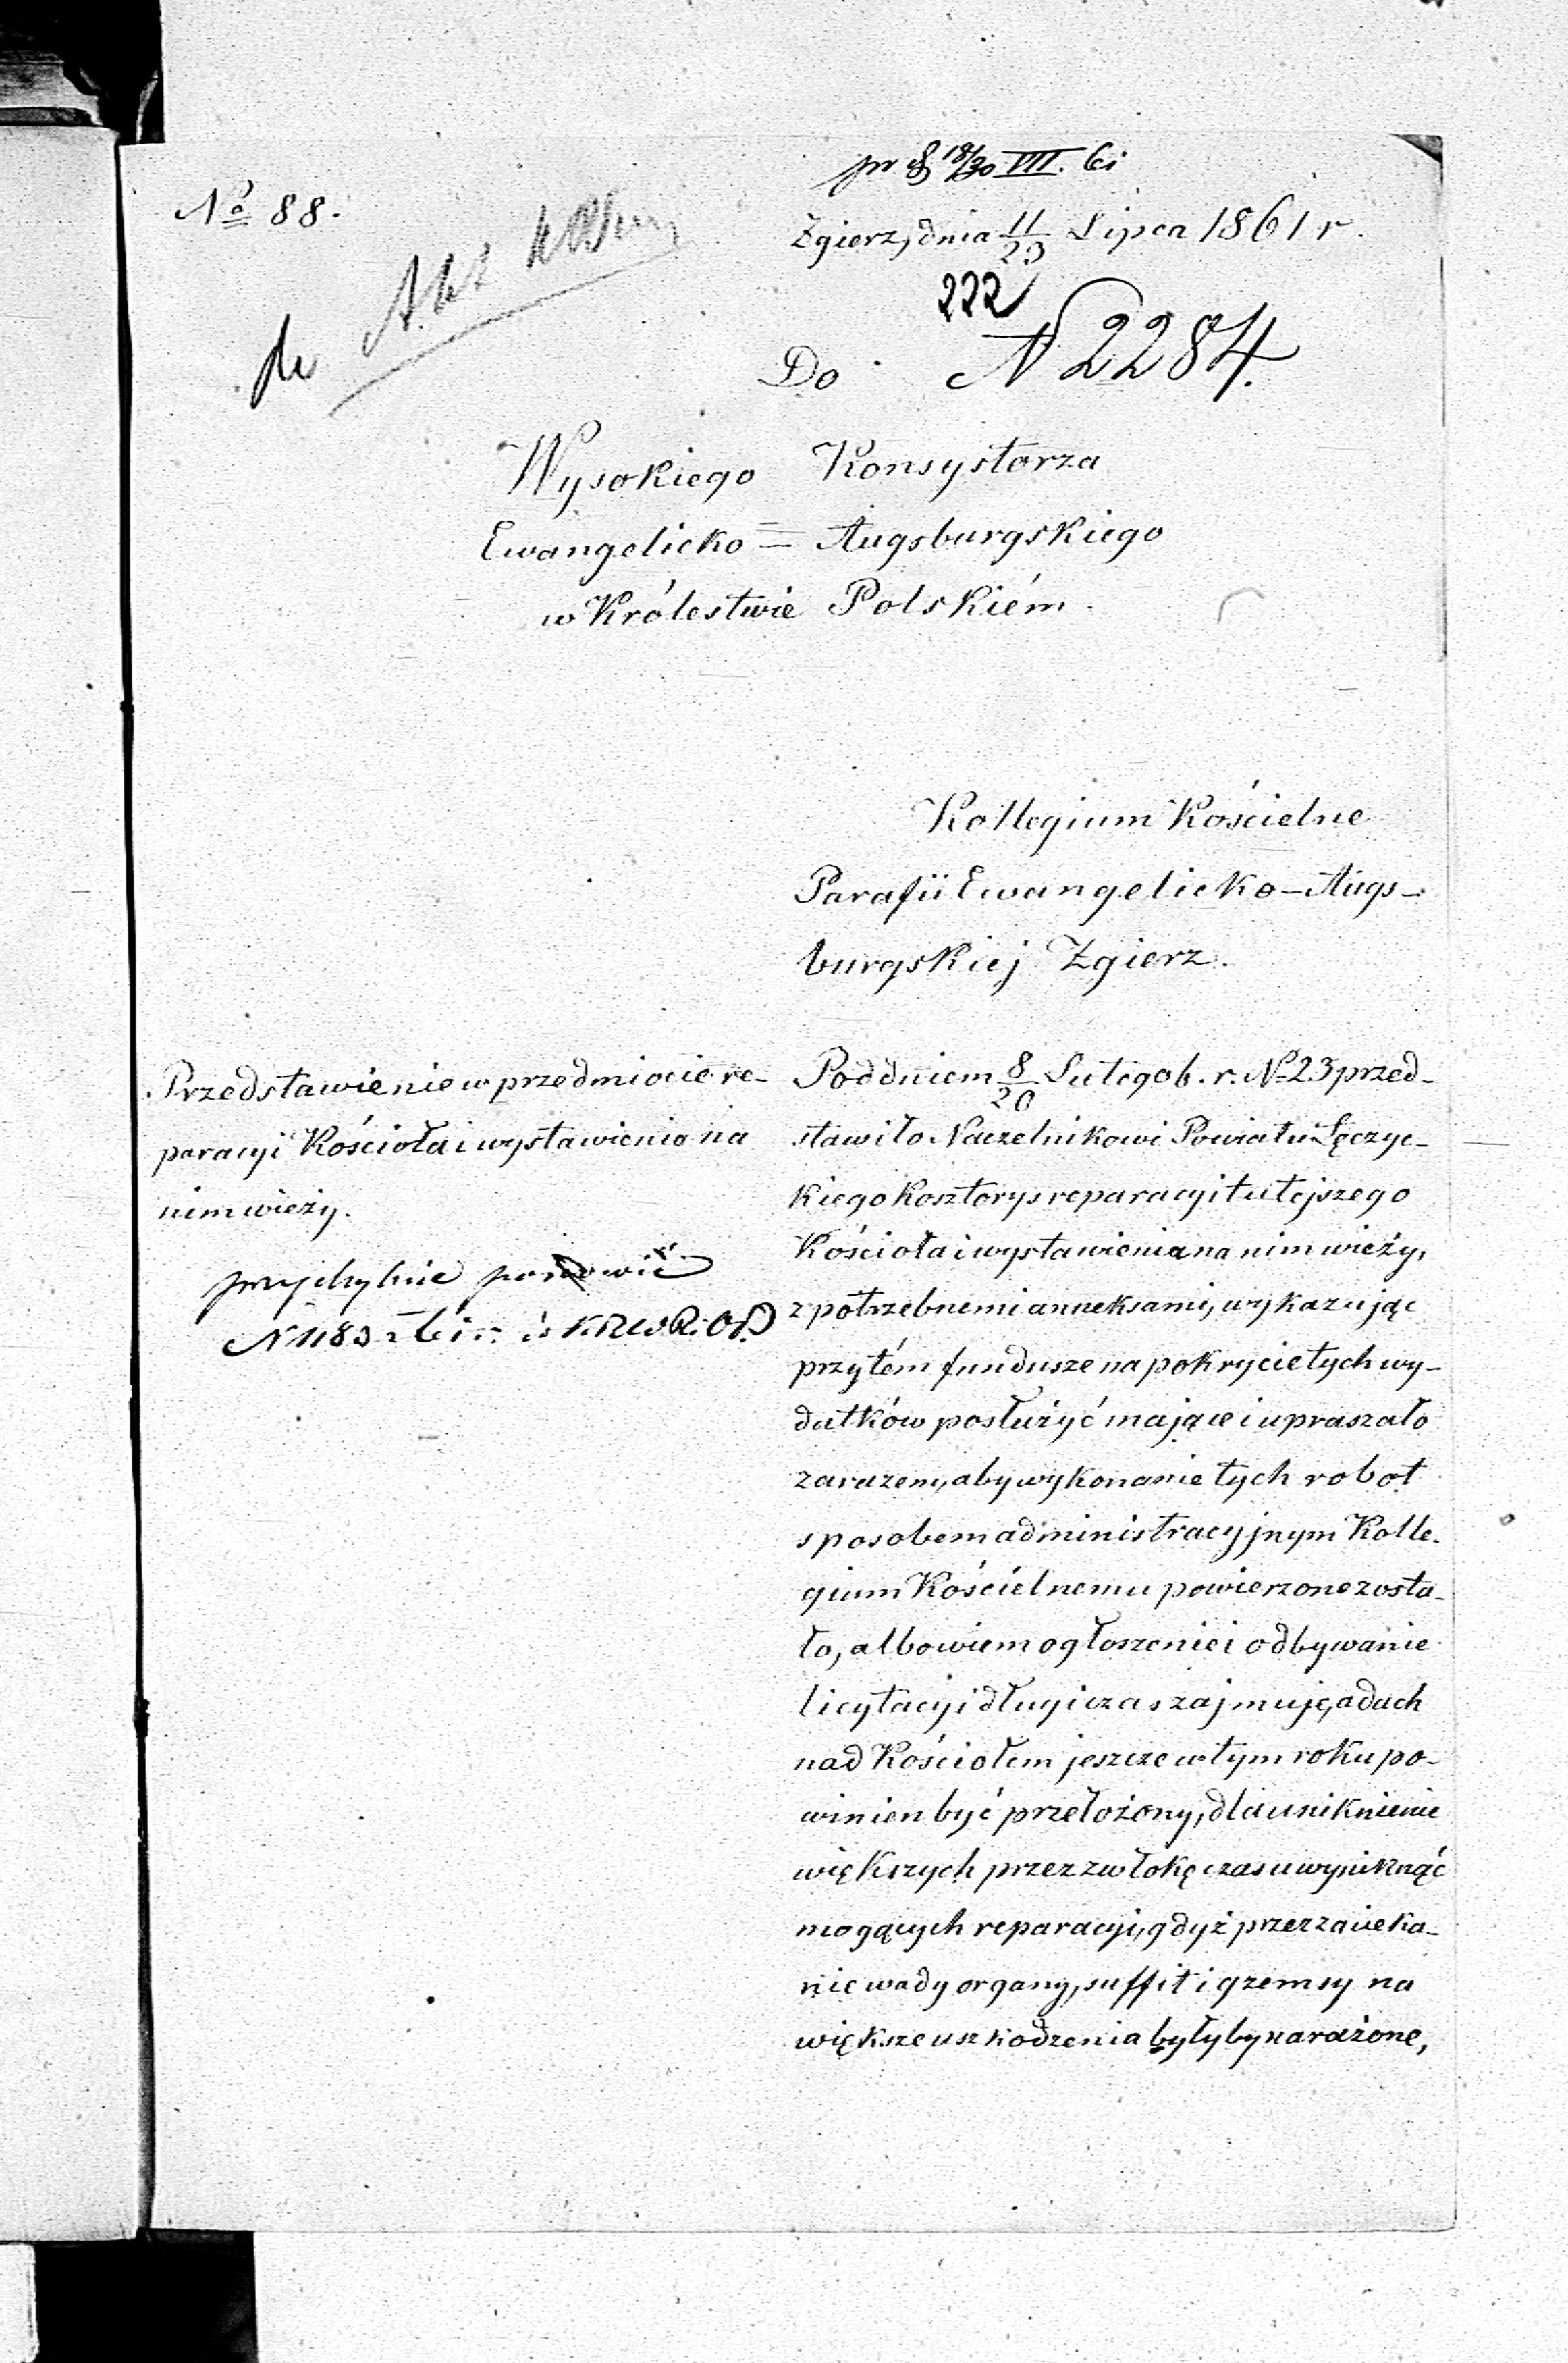 pr 18/30 VII. 61
No 88.
Zgierz, dnia 11/23 Lipca 1861 r.
222
Do N 2284.
Wysokiego Konsystorza
Ewangelicko = Augsburgskiego
w Królestwie Polskiém.
Kollegium Kościelne
Parafii Ewangelicko-Augs-
burgskiej Zgierz.
Przedstawienie w przedmiocie re-
paracyi Kościoła i wystawienia na
nim wieży.
przychylnie
N 1183
Pod dniem 8/20 Lutego b. r. No 23 przed-
stawiło Naczelnikowi Powiatu Łęczyc-
kiego Kosztorys reparacyi tutejszego
Kościoła i wystawienia na nim wieży,
z potrzebnemi anneksami, wykazując
przytém fundusze na pokrycie tych wy-
datków posłużyć mające i upraszało
zarazem, aby wykonanie tych robot
sposobem administracyjnym Kolle-
gium Kościelnemu powierzone zosta-
ło, albowiem ogłoszenie i odbywanie
licytacyi długi czas zajmuję, a dach
nad Kościołem jeszcze w tym roku po-
winien być przełożony, dla uniknienie
większych przez zwłokę czasu wyniknąć
mogących reparacyi, gdyż przez zacieka-
nie wady organy, suffit i gzemsy na
większe uszkodzenia byłyby narażone,